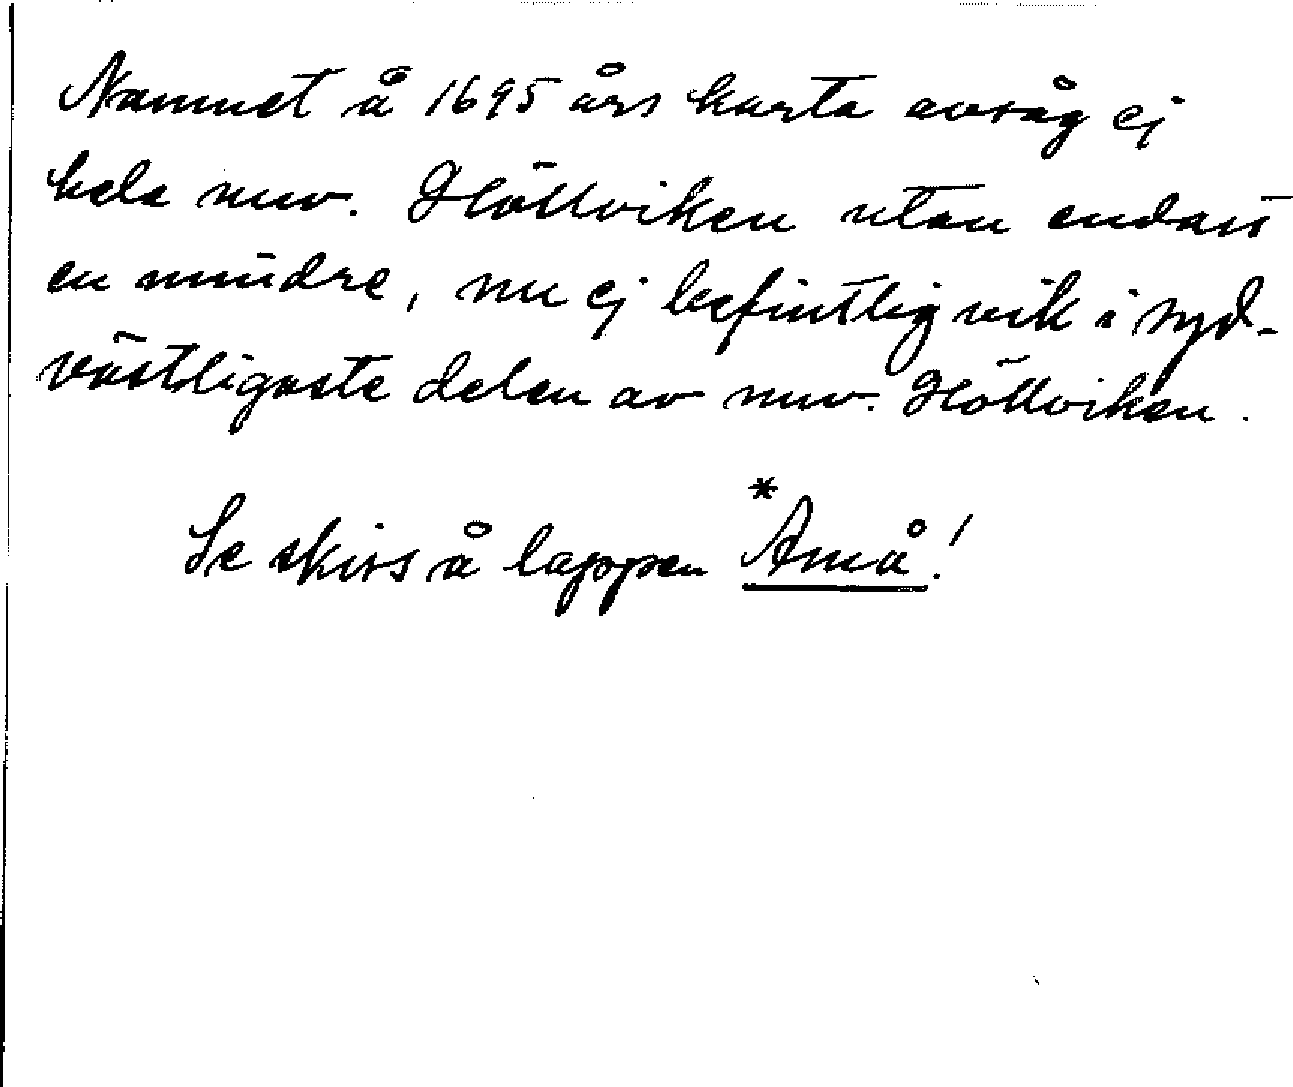 Namnet å 1695 års karta avsåg ej
hela nuv. Höllviken utan endast
en mindre, nu ej befintlig vik i syd-
västligaste delen av nuv. Höllviken.
Se skiss å lappen *Amå!